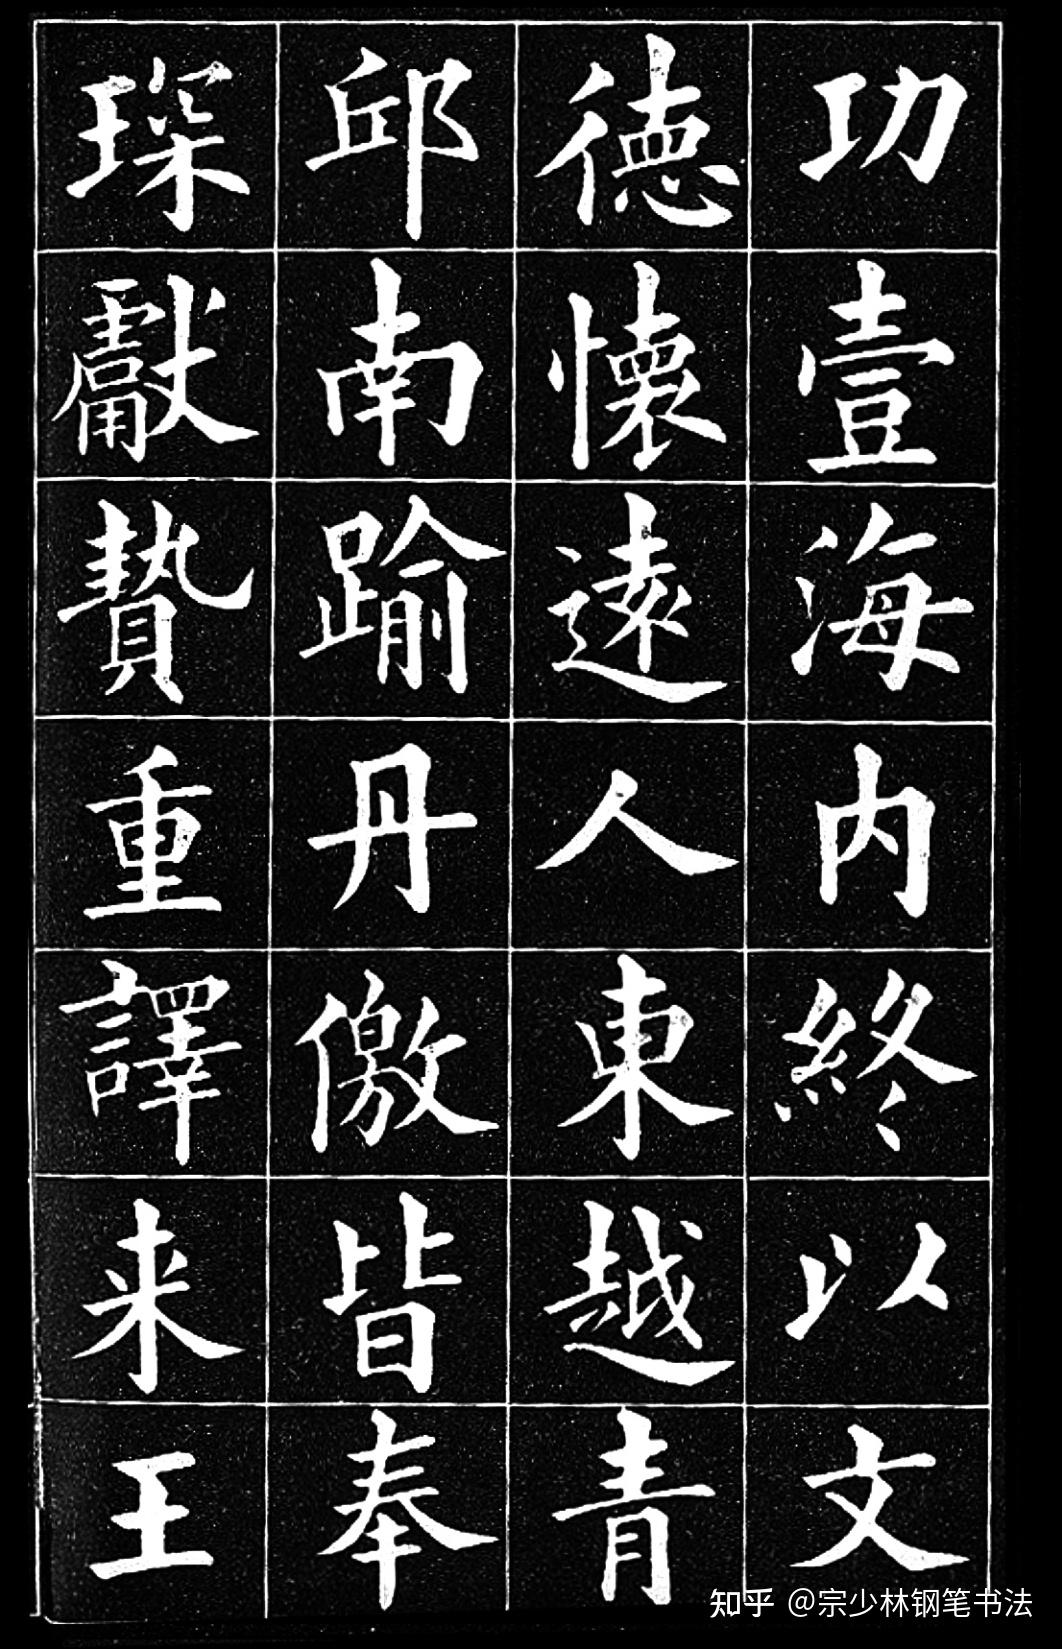 功壹海内終以文
德懷遠人東越青
邱南踰丹儌皆奉
琛獻贄重譯来王
知乎 @宗少林钢笔书法